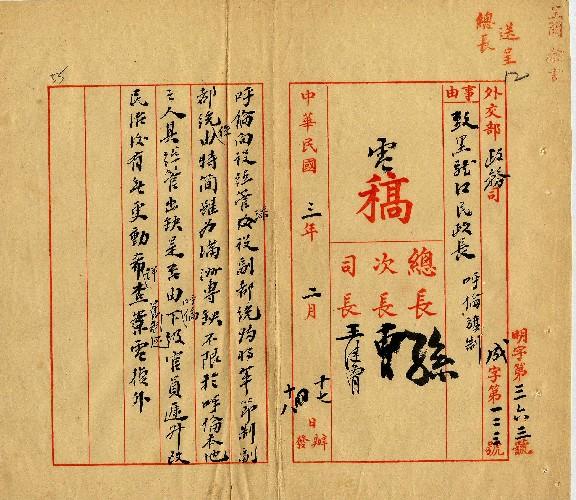 送呈
總長
外交部 政務司
事由
致黑龍江民政長 呼倫旗制
明字第三六三號
咸字第一二三號
電稿
總長 孫
次長 曹
司長
中華民國 三年 二月 十七日辦
十八 發
呼倫向設總管改設副都統均歸軍節制副
都統由特簡雖為滿洲專缺不限於呼倫本地
之人其總管出缺是否由下級官員遞升改
民治後有無更動希查案電復外
55